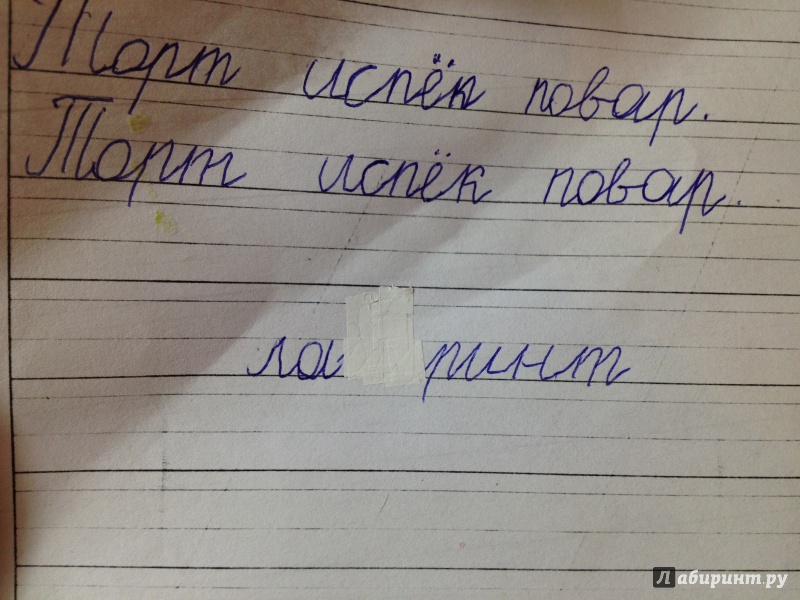 Торт испёк повар.
Торт испёк повар.
ла ринт
Лабиринт.ру